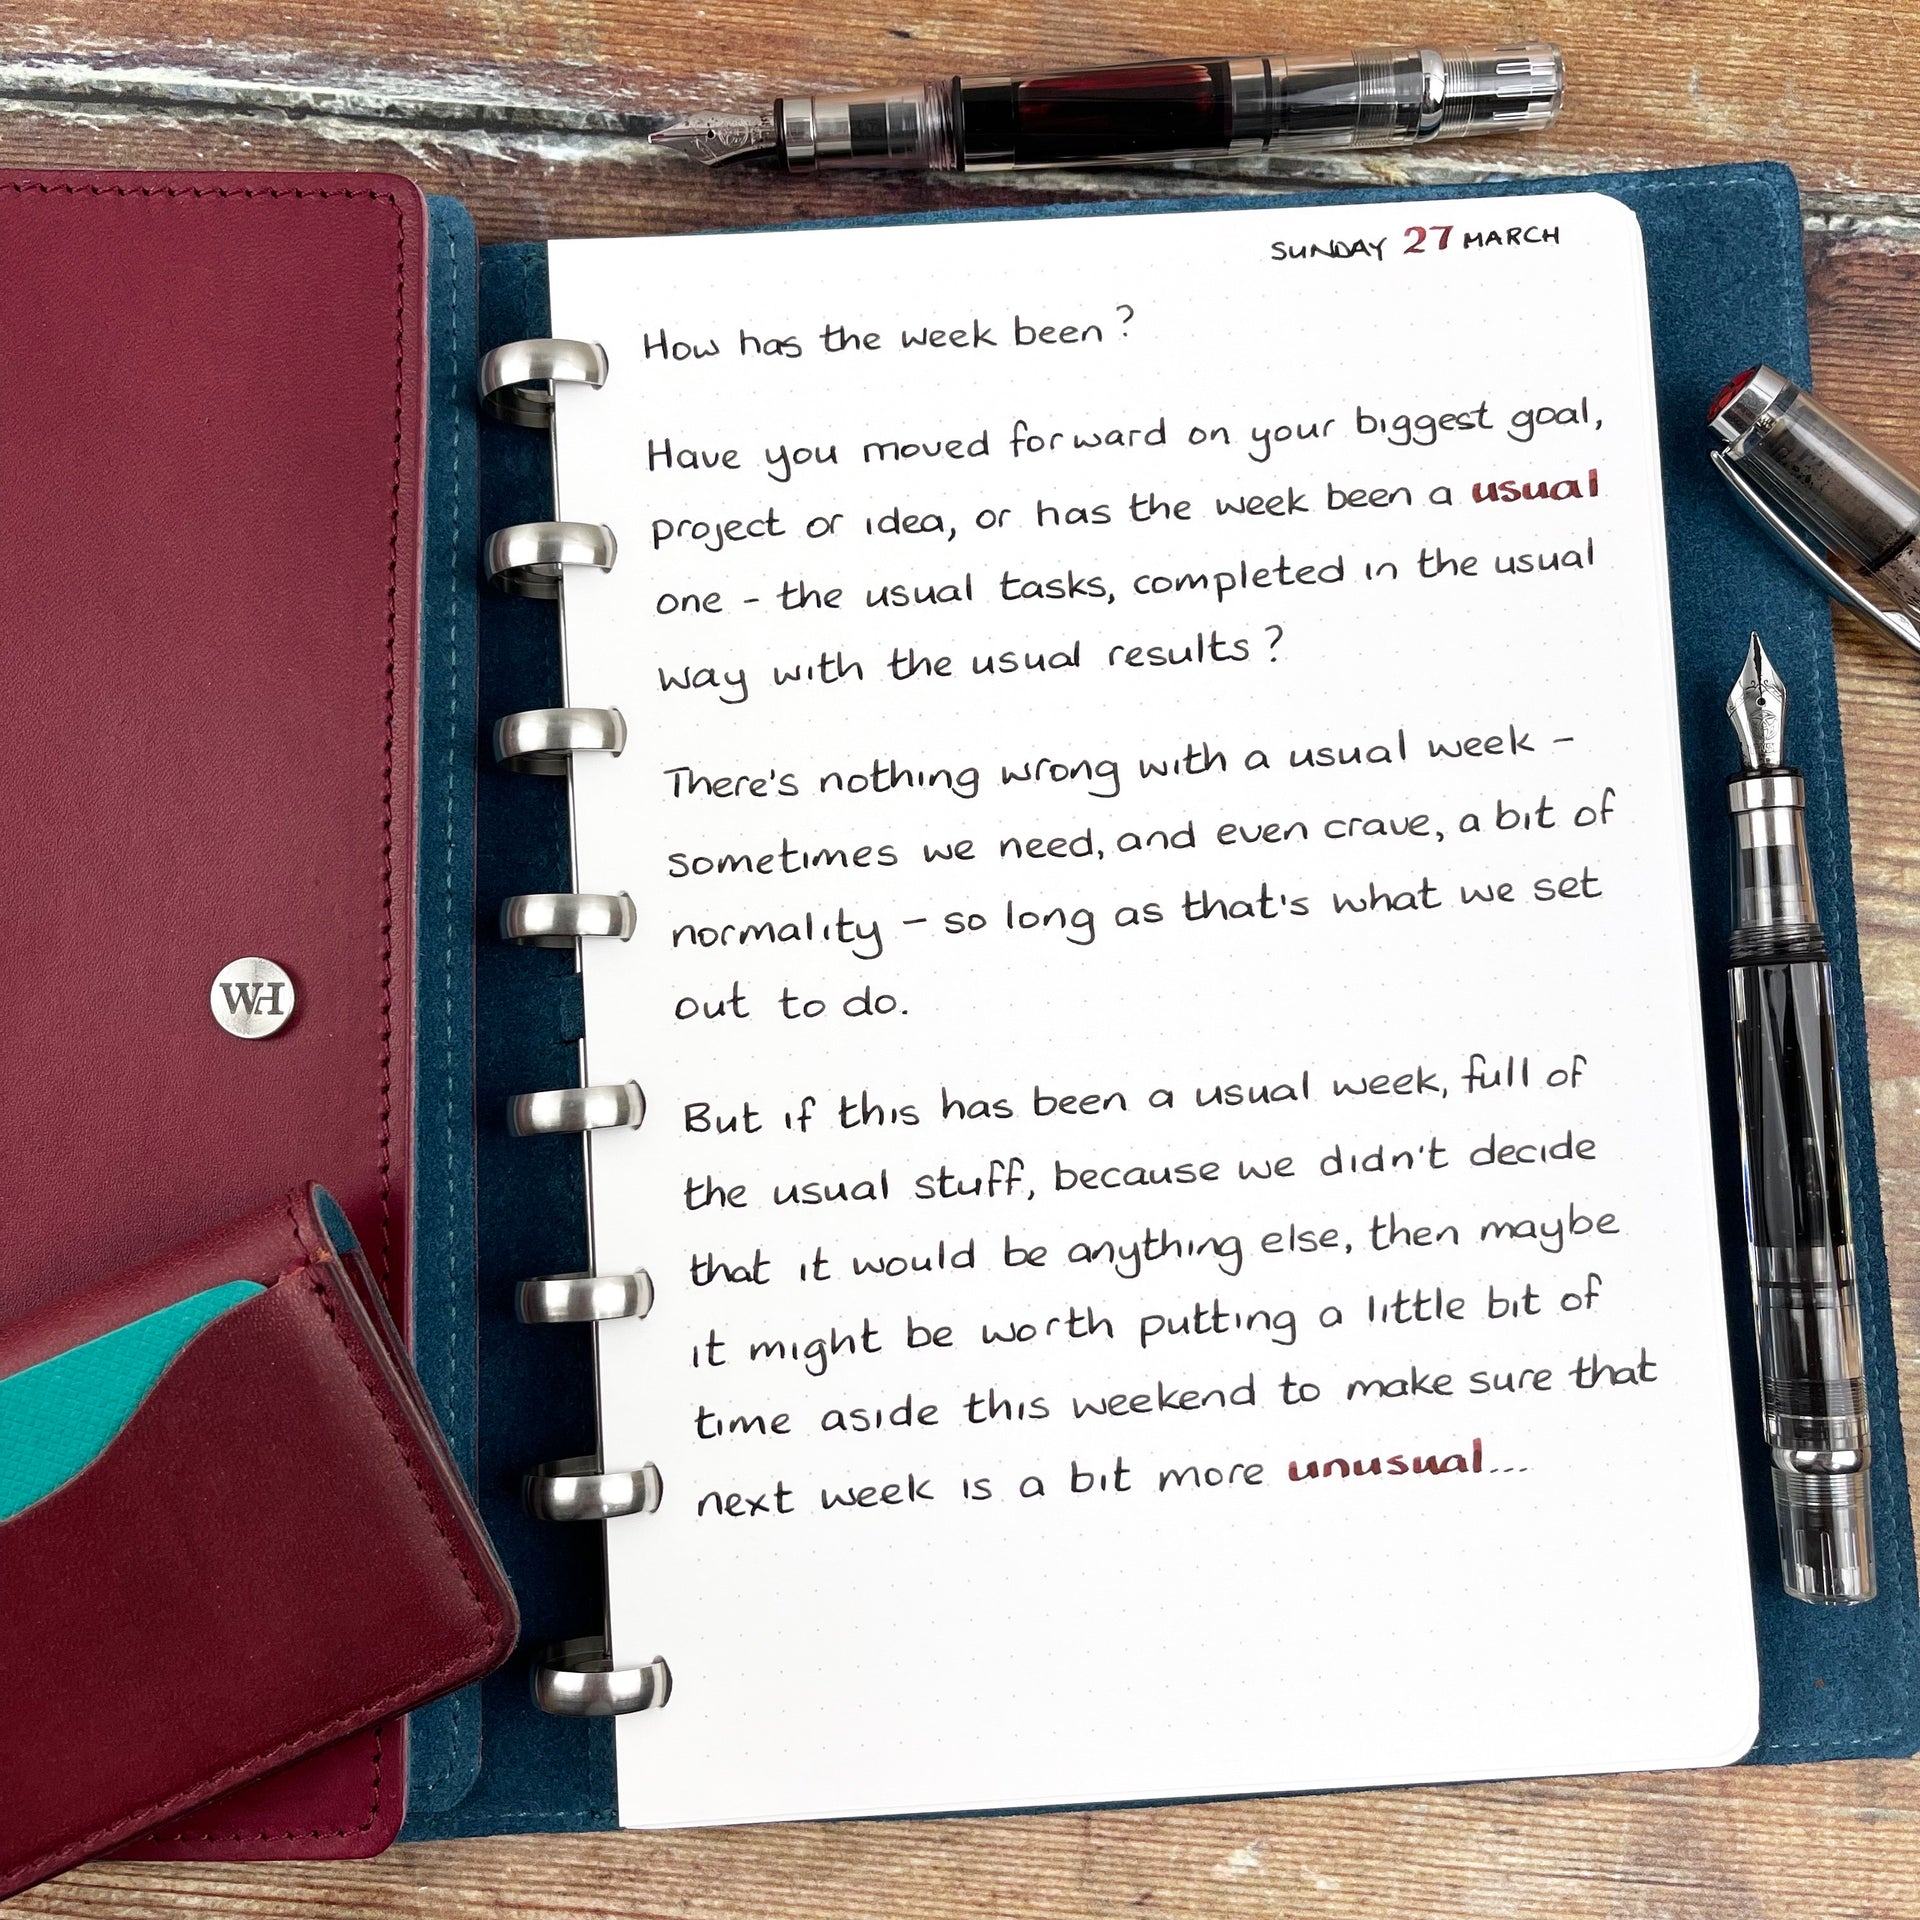 SUNDAY 27 MARCH
How has the week been?
Have you moved forward on your biggest goal,
project or idea, or has the week been a usual
one - the usual tasks, completed in the usual
way with the usual results?
There's nothing wrong with a usual week -
sometimes we need, and even crave, a bit of
normality - so long as that's what we set
out to do.
But if this has been a usual week, full of
the usual stuff, because we didn't decide
that it would be anything else, then maybe
it might be worth putting a little bit of
time aside this weekend to make sure that
next week is a bit more unusual...
WH